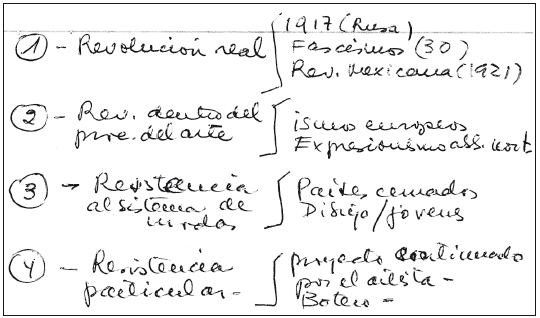 1 - Revolución real { 1917 (Rusa)
Fascismos (30)
Rev. Mexicana (1921)
2 - Rev. dentro del
proc. del arte { ismos europeos
Expresionismo abs. nort.
3 - Resistencia
al sistema de
modas { Países cerrados
Dibujo/jóvenes
4 - Resistencia
particular - { proyecto continuado
por el artista -
Botero -